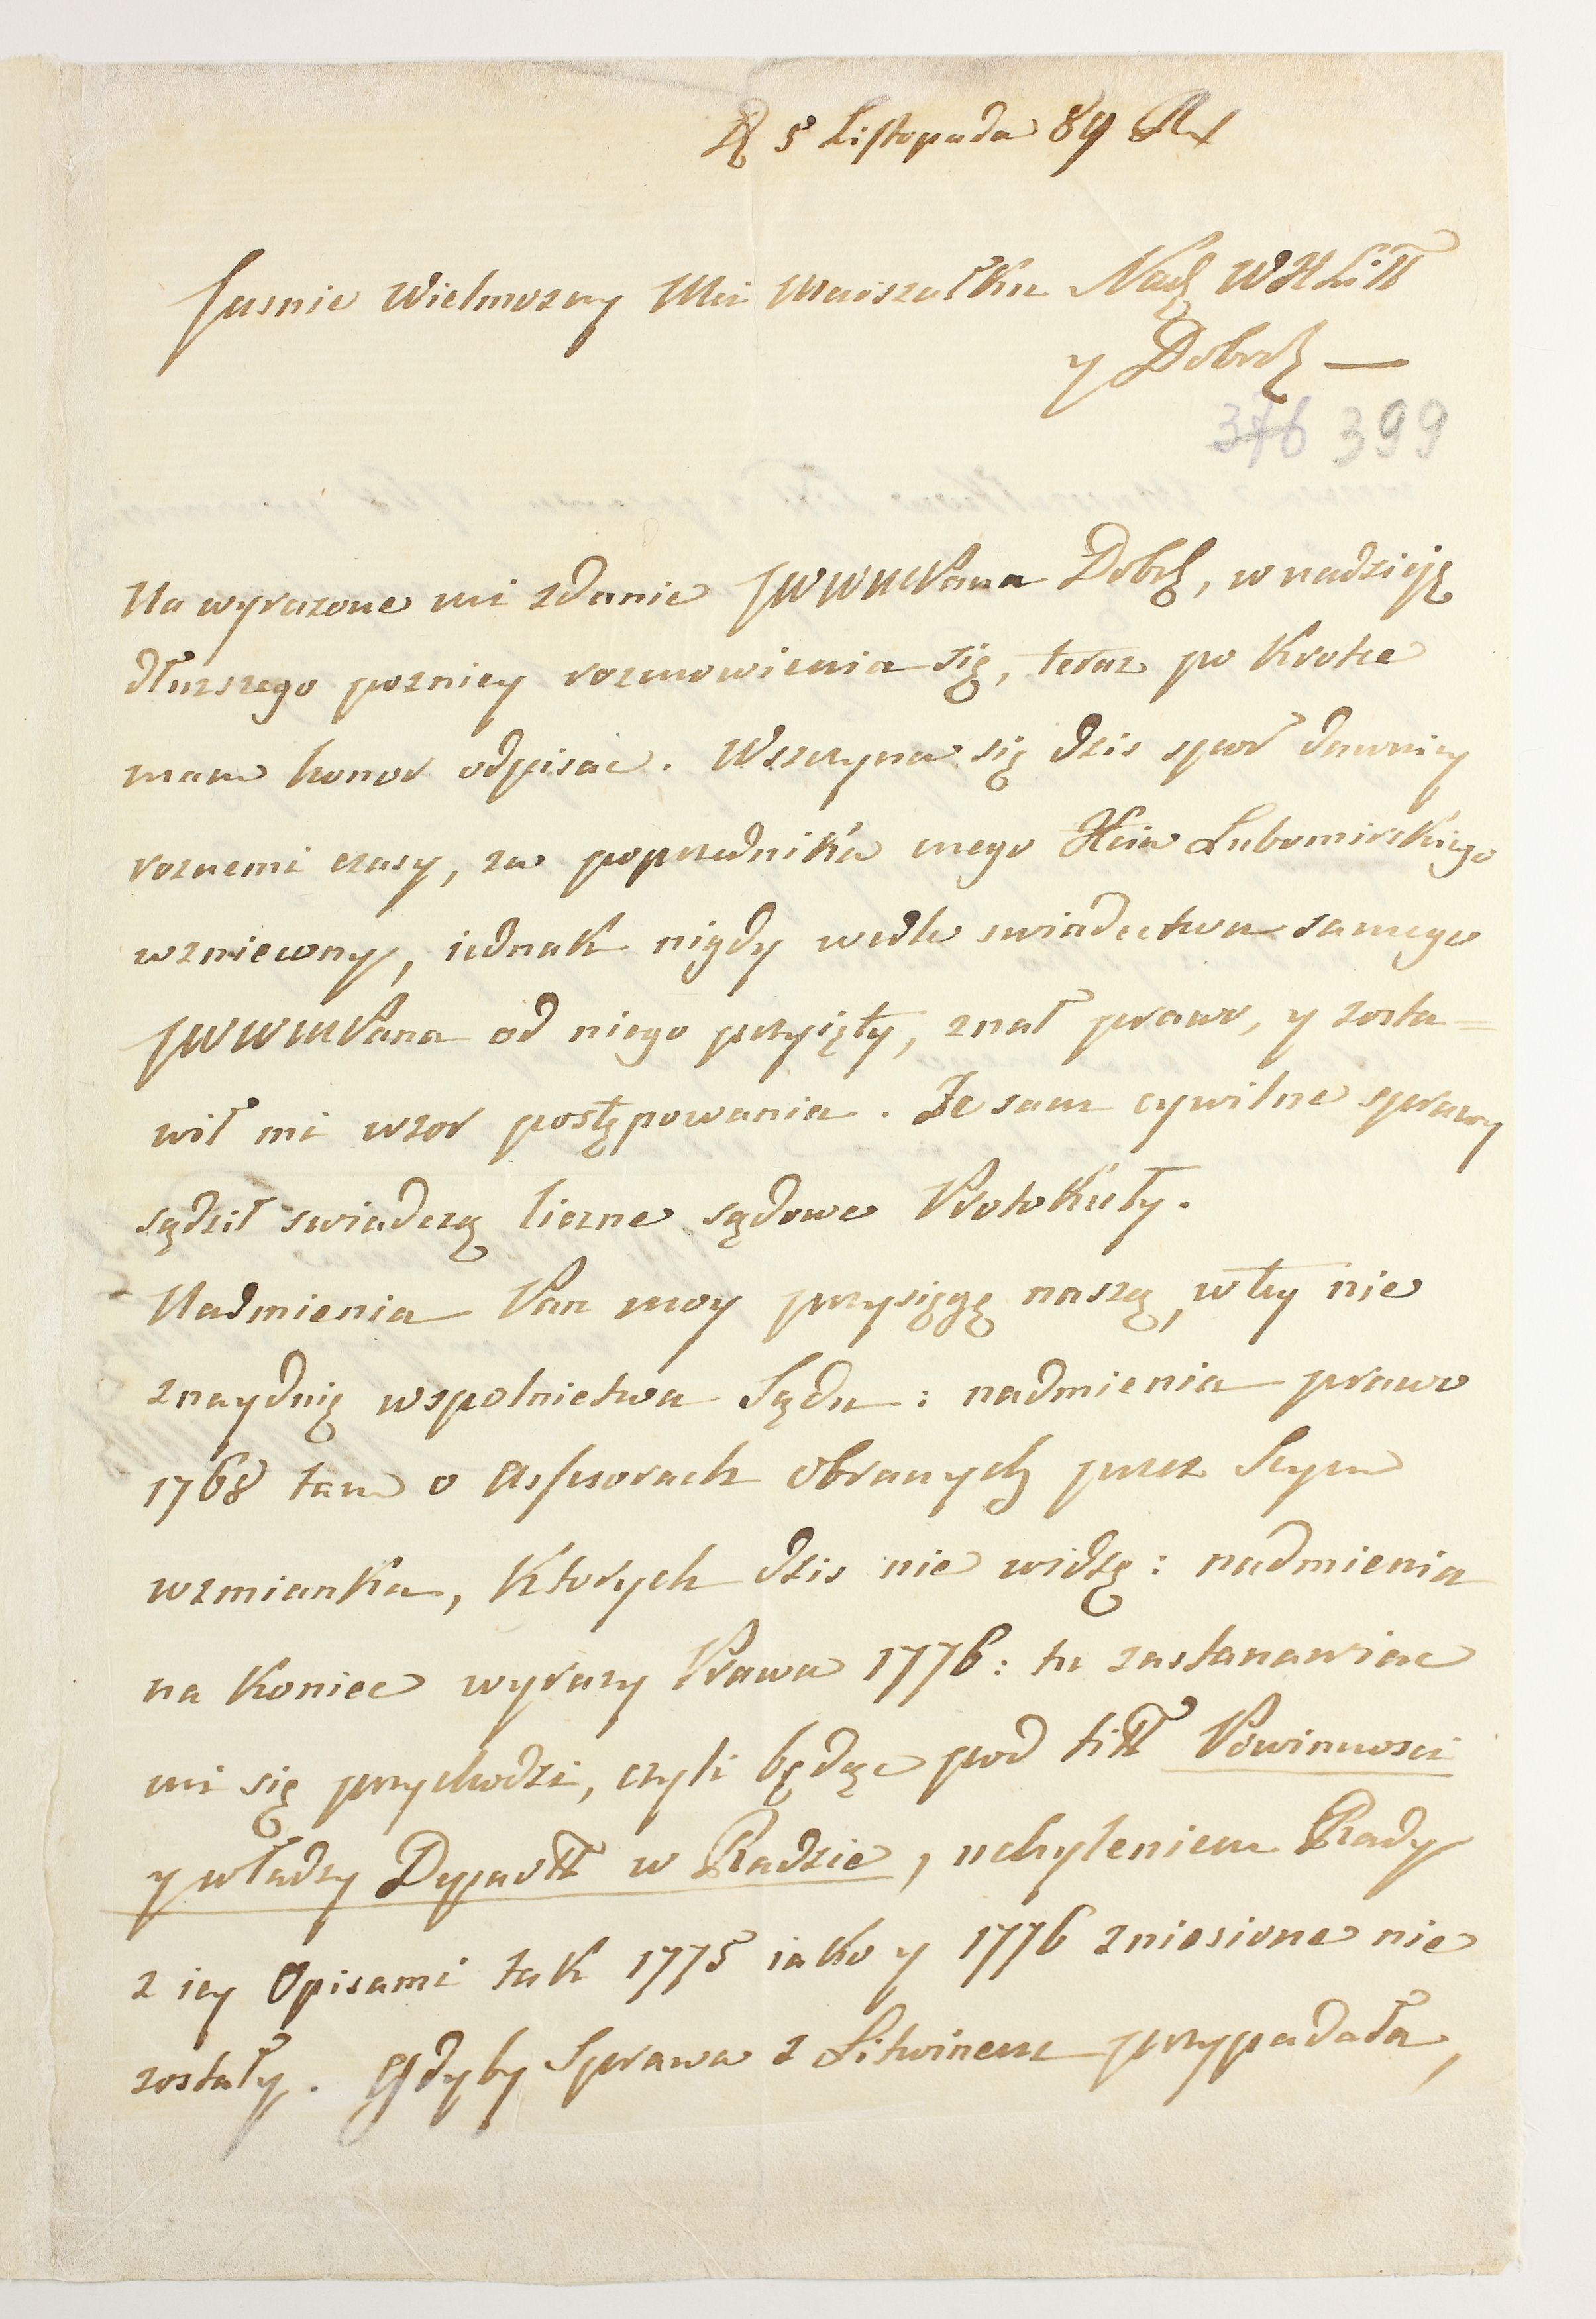 D 5 Listopada 89 R
Jasnie Wielmozny Mci Marszałku Nad W X Litt
y Dobrd —
376 399
Na wyrazone mi zdanie JWWMPana Dobd, w nadzieję
dłuzszego pozniey rozmowienia się, teraz po krotce
mam honor odpisac. Wszczyna się dzis spor dawniey
roznemi czasy, za poprzednika mego Xcia Lubomirskiego
wzniecony, iednak nigdy wedle swiadectwa samego
JWWMPana od niego przyięty, znał prawo, y zosta=
wił mi wzor postępowania. Ze sam cywilne sprawy
sądził swiadczą liczne sądowe Protokuły.
Nadmienia Pan moy przysięgę naszą, w tey nie
znayduię wspolnictwa Sądu: nadmienia prawo
1768 tam o Assesorach obranych przez Seym
wzmianka, Ktorych dzis nie widzę: nadmienia
na koniec wyrazy Prawa 1776: tu zastanawiac
mi się przychodzi, czyli będąc pod titt Powinnosci
y władzy Departt w Radzie, uchyleniem Rady
z iey Opisami tak 1775 iako y 1776 zniesione nie
zostały. Gdyby Sprawa z Litwinem przypadała,